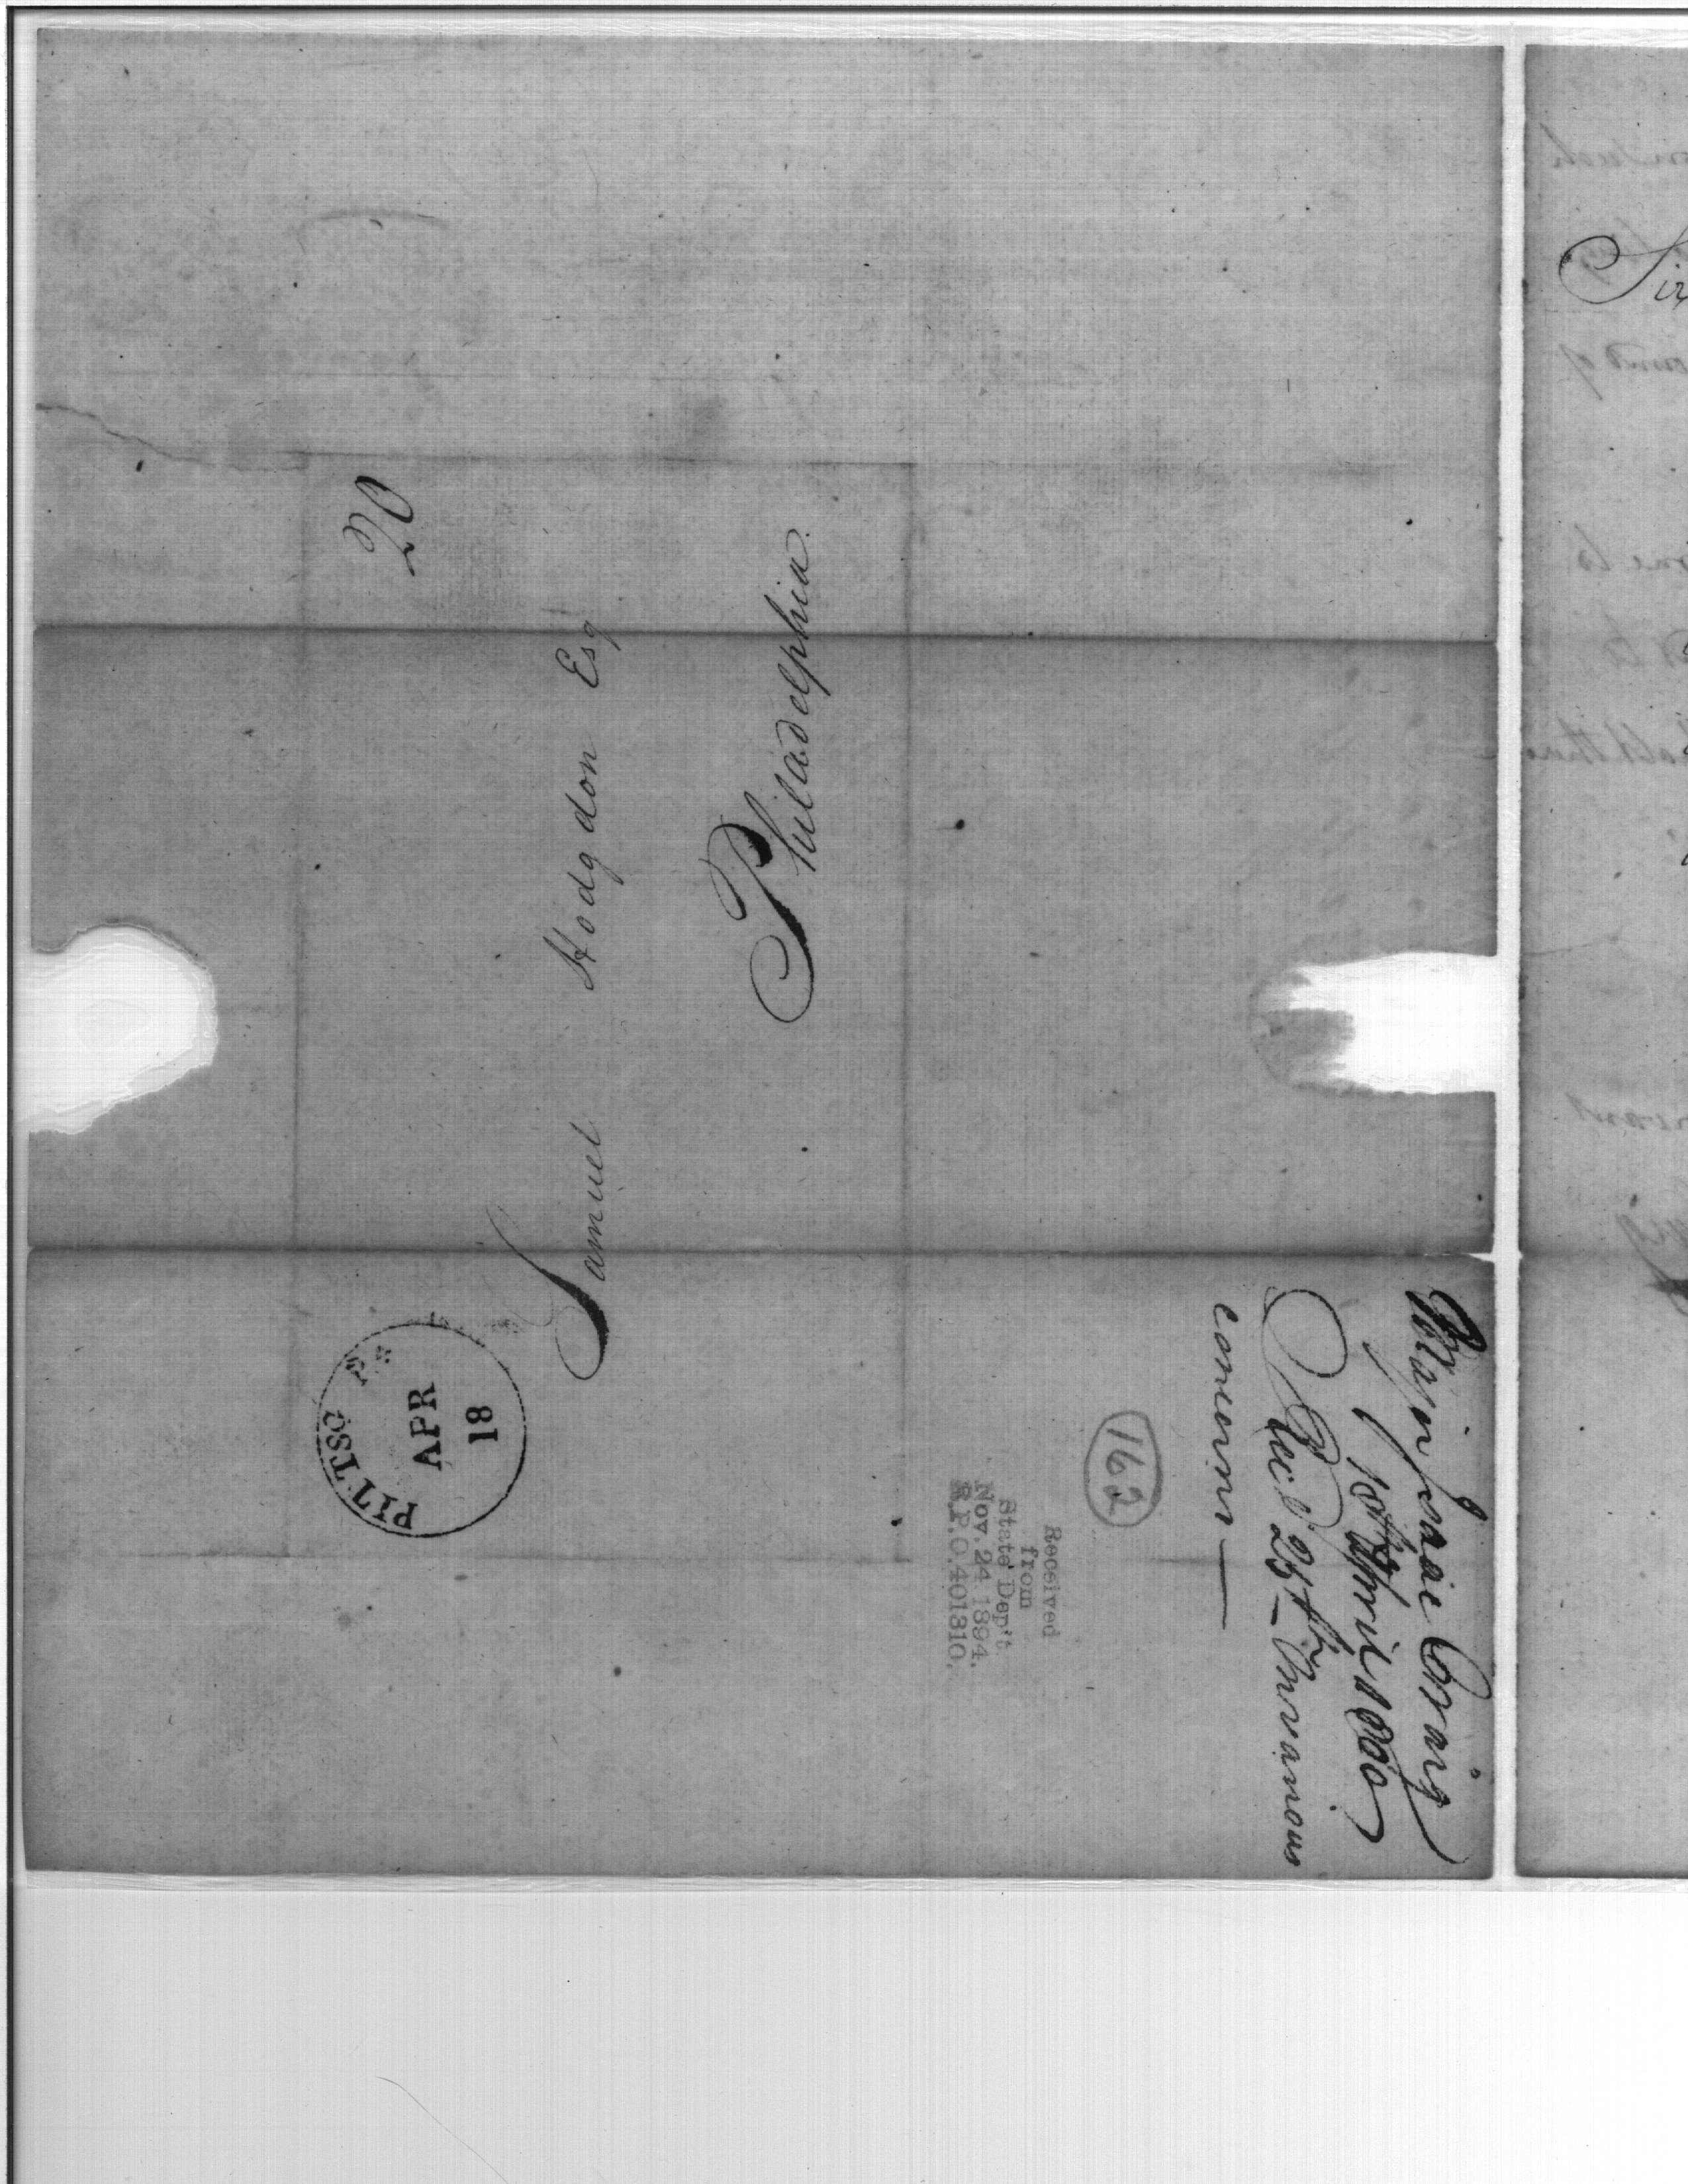 20
Samuel Hodgdon Esq
Philadelphia.
PITTSG Pa
APR
18
Major Isaac Craig
18th April 1800
Rec'd 25th
concerns —
162
Received
from
State Dep't
Nov. 24 1894.
R.P.O. 401310.
Sir